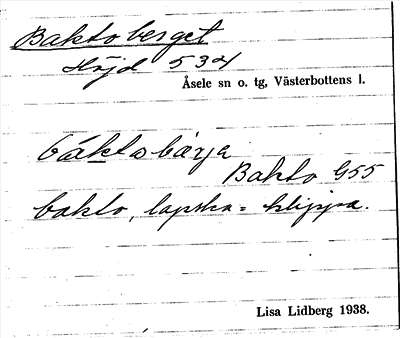 Baktoberget
Höjd 534
Åsele sn o. tg, Västerbottens l.
båktobärja
Bakto G55
bakto, lapska = klippa.
Lisa Lidberg 1938.